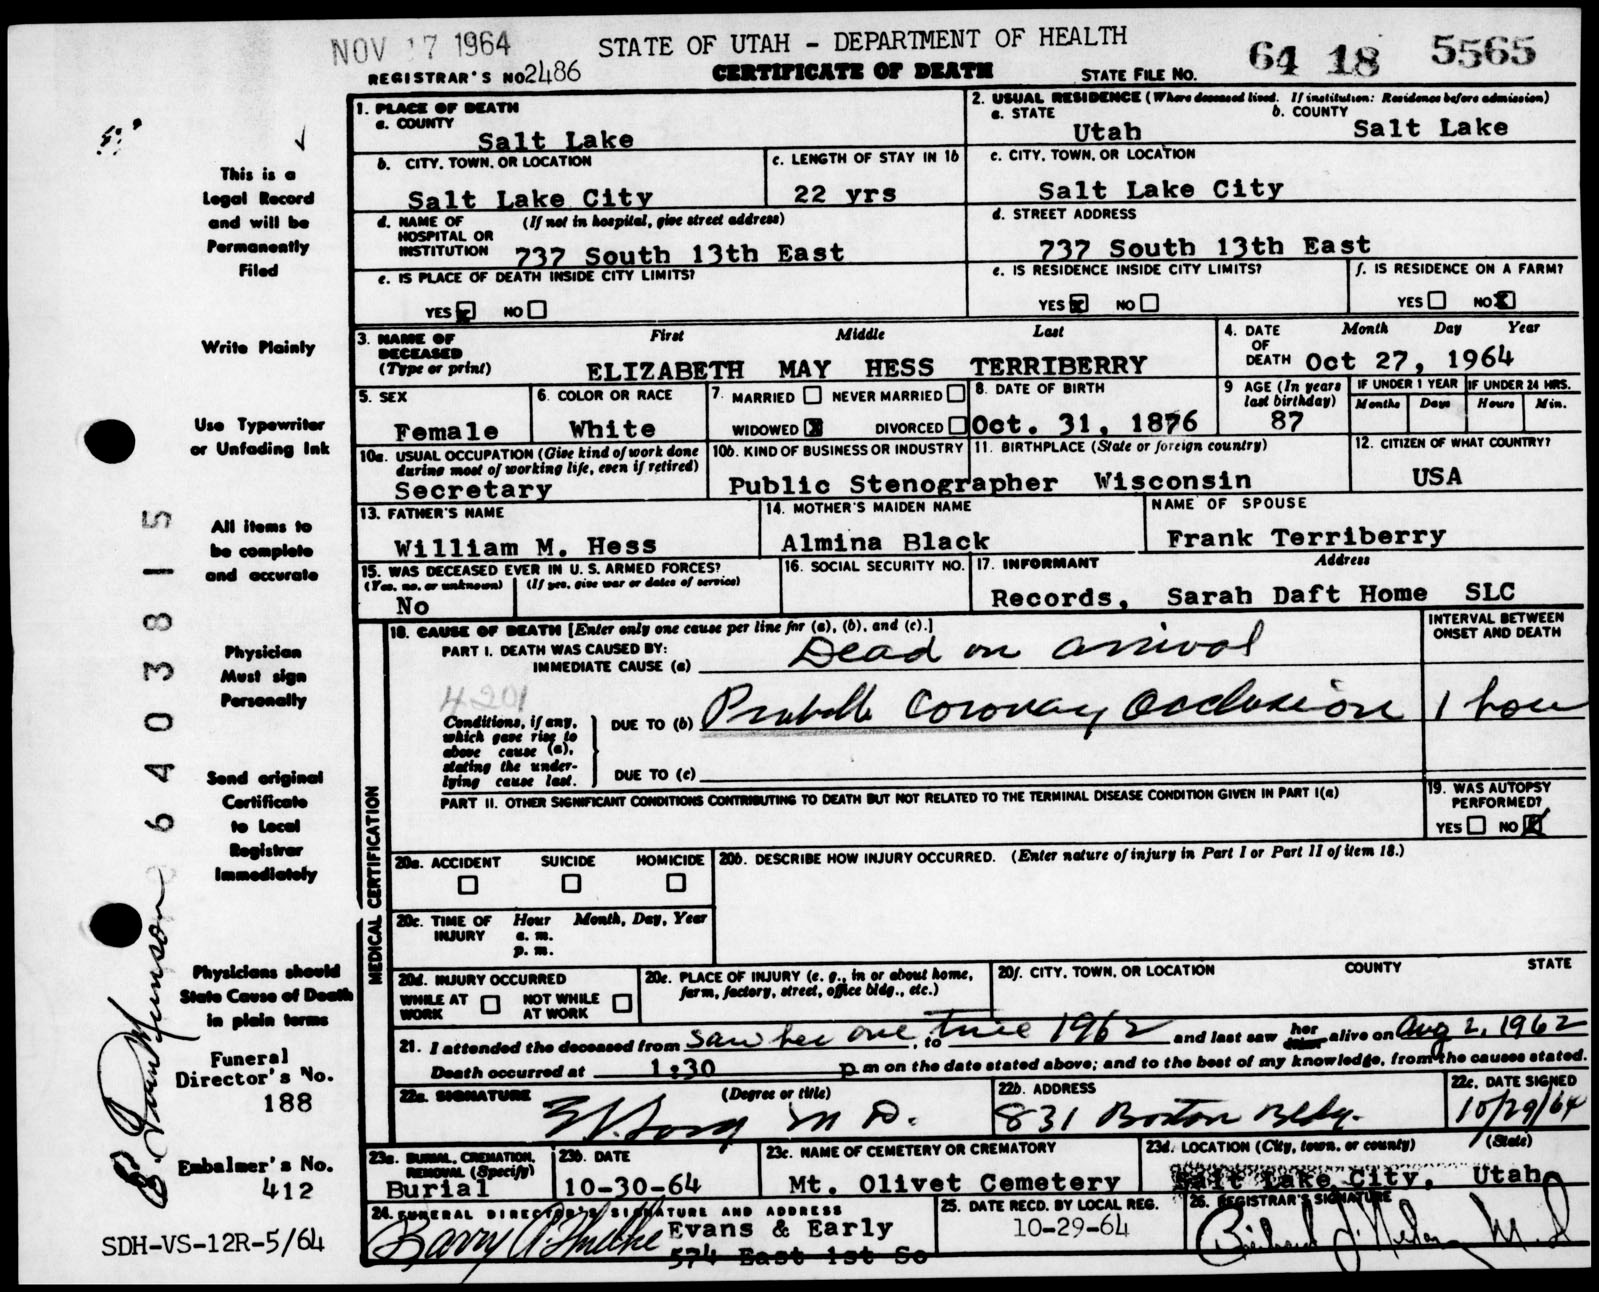 NOV 17 1964
STATE OF UTAH - DEPARTMENT OF HEALTH
REGISTRAR'S NO 2486
CERTIFICATE OF DEATH
STATE FILE NO. 64 18 5565
1. PLACE OF DEATH
a. COUNTY
Salt Lake
2. USUAL RESIDENCE (Where deceased lived. If institution: Residence before admission)
a. STATE
Utah
b. COUNTY
Salt Lake
b. CITY, TOWN, OR LOCATION
Salt Lake City
c. LENGTH OF STAY IN 1b
22 yrs
c. CITY, TOWN, OR LOCATION
Salt Lake City
d. NAME OF HOSPITAL OR INSTITUTION (If not in hospital, give street address)
737 South 13th East
d. STREET ADDRESS
737 South 13th East
e. IS PLACE OF DEATH INSIDE CITY LIMITS?
YES X NO
e. IS RESIDENCE INSIDE CITY LIMITS?
YES X NO
f. IS RESIDENCE ON A FARM?
YES NO X
3. NAME OF DECEASED (Type or print)
First Middle Last
ELIZABETH MAY HESS TERRIBERRY
4. DATE OF DEATH Month Day Year
Oct 27, 1964
5. SEX
Female
6. COLOR OR RACE
White
7. MARRIED NEVER MARRIED
WIDOWED X DIVORCED
8. DATE OF BIRTH
Oct. 31, 1876
9 AGE (In years last birthday)
87
IF UNDER 1 YEAR
Months Days
IF UNDER 24 HRS.
Hours Min.
10a. USUAL OCCUPATION (Give kind of work done during most of working life, even if retired)
Secretary
10b. KIND OF BUSINESS OR INDUSTRY
Public Stenographer
11. BIRTHPLACE (State or foreign country)
Wisconsin
12. CITIZEN OF WHAT COUNTRY?
USA
13. FATHER'S NAME
William M. Hess
14. MOTHER'S MAIDEN NAME
Almina Black
NAME OF SPOUSE
Frank Terriberry
15. WAS DECEASED EVER IN U. S. ARMED FORCES?
(Yes, no, or unknown) (If yes, give war or dates of service)
No
16. SOCIAL SECURITY NO.
17. INFORMANT Address
Records, Sarah Daft Home SLC
MEDICAL CERTIFICATION
18. CAUSE OF DEATH [Enter only one cause per line for (a), (b), and (c).]
INTERVAL BETWEEN ONSET AND DEATH
PART I. DEATH WAS CAUSED BY:
IMMEDIATE CAUSE (a) Dead on arrival
4201
Conditions, if any, which gave rise to above cause (a), stating the underlying cause last.
DUE TO (b) Probable Coronary Occlusion 1 hour
DUE TO (c)
PART II. OTHER SIGNIFICANT CONDITIONS CONTRIBUTING TO DEATH BUT NOT RELATED TO THE TERMINAL DISEASE CONDITION GIVEN IN PART I(a)
19. WAS AUTOPSY PERFORMED?
YES NO X
20a. ACCIDENT SUICIDE HOMICIDE
20b. DESCRIBE HOW INJURY OCCURRED. (Enter nature of injury in Part I or Part II of item 18.)
20c. TIME OF INJURY Hour Month, Day, Year
a. m.
p. m.
20d. INJURY OCCURRED
WHILE AT WORK NOT WHILE AT WORK
20e. PLACE OF INJURY (e. g., in or about home, farm, factory, street, office bldg., etc.)
20f. CITY, TOWN, OR LOCATION COUNTY STATE
21. I attended the deceased from saw her one, to time 1962 and last saw her alive on Aug 2, 1962
Death occurred at 1:30 p m on the date stated above; and to the best of my knowledge, from the causes stated.
22a. SIGNATURE (Degree or title)
M D.
22b. ADDRESS
831 Boston Bldg.
22c. DATE SIGNED
10/29/64
23a. BURIAL, CREMATION, REMOVAL (Specify)
Burial
23b. DATE
10-30-64
23c. NAME OF CEMETERY OR CREMATORY
Mt. Olivet Cemetery
23d. LOCATION (City, town, or county) (State)
Salt Lake City, Utah
24. FUNERAL DIRECTOR'S SIGNATURE AND ADDRESS
Evans & Early
574 East 1st So
25. DATE RECD. BY LOCAL REG.
10-29-64
26. REGISTRAR'S SIGNATURE
This is a
Legal Record
and will be
Permanently
Filed
Write Plainly
Use Typewriter
or Unfading Ink
All items to
be complete
and accurate
Physician
Must sign
Personally
Send original
Certificate
to Local
Registrar
Immediately
Physicians should
State Cause of Death
in plain terms
Funeral
Director's No.
188
Embalmer's No.
412
SDH-VS-12R-5/64
6403815